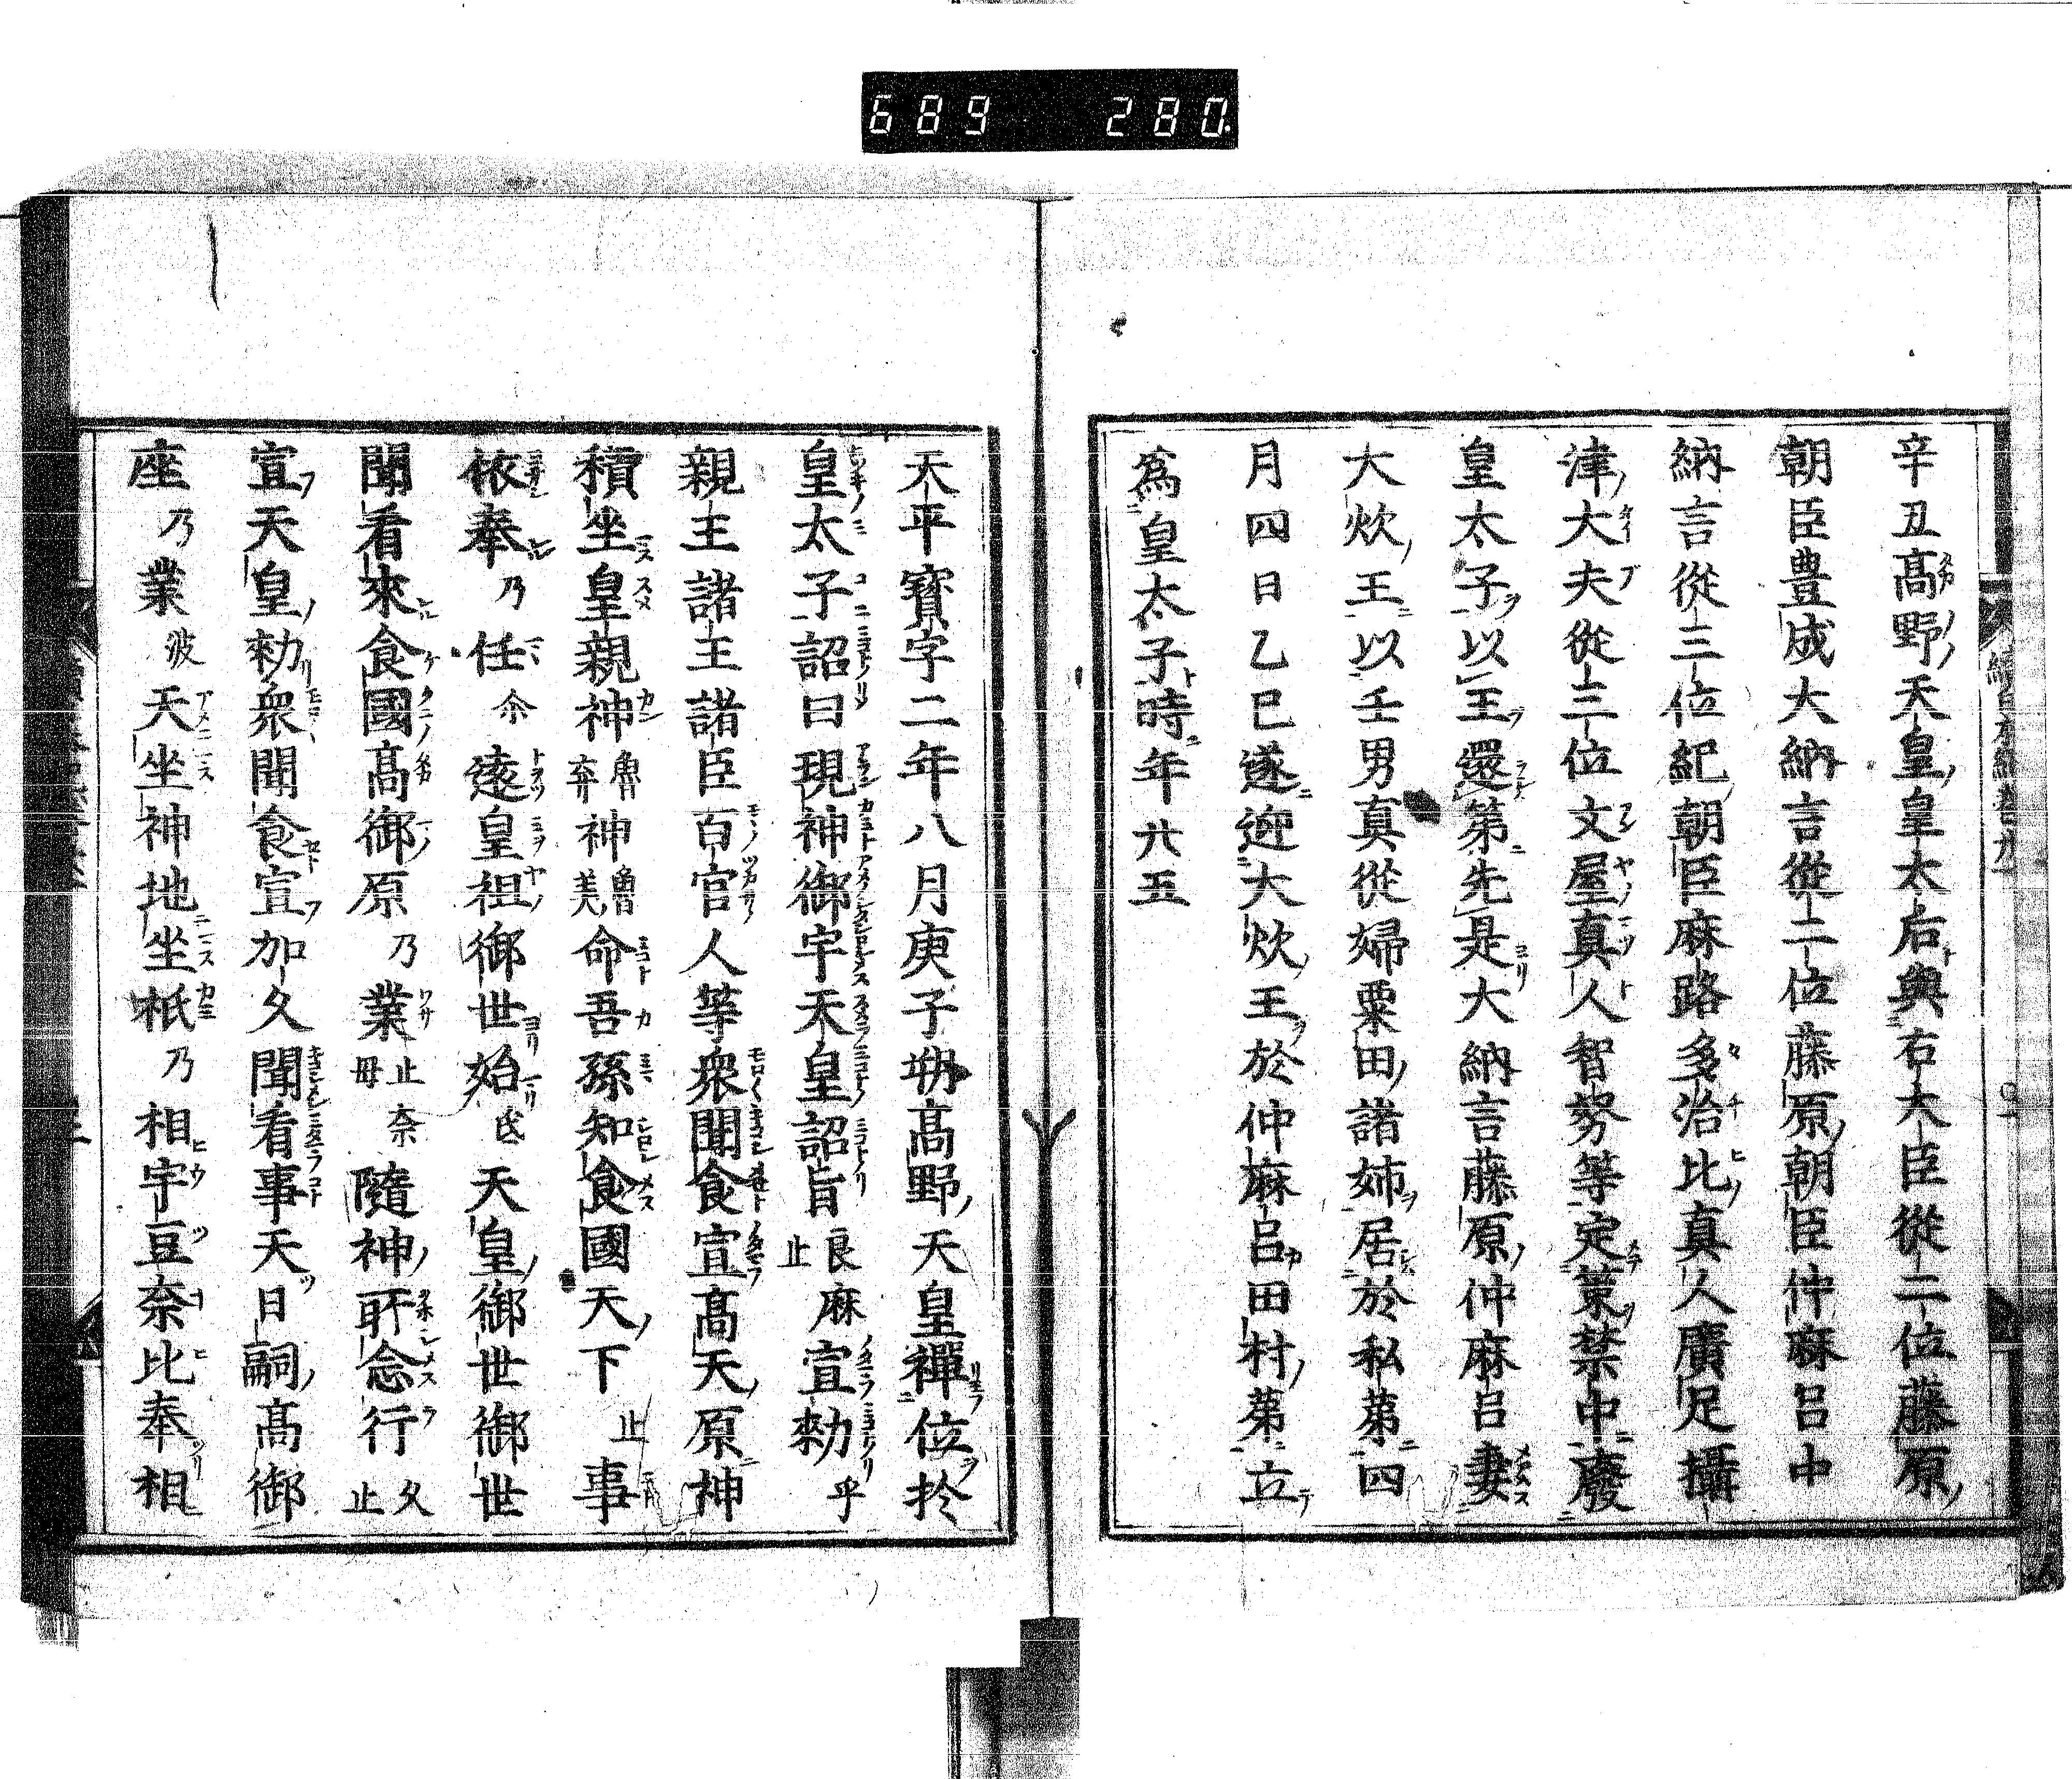 689 280
辛丑高野天皇皇太后與右大臣從二位藤原
朝臣豊成大納言從二位藤原朝臣仲麻呂中
納言從三位紀朝臣麻路多治比真人廣足攝
津大夫從三位文屋真人智努等定策禁中廢
皇太子以王還第先是大納言藤原仲麻呂妻
大炊王以亡男真從婦粟田諸姉居於私第四
月四日乙巳遂迎大炊王於仲麻呂田村第立
為皇太子時年廿五
天平寶字二年八月庚子朔高野天皇禪位於
皇太子詔曰現神御宇天皇詔旨良麻止宣勅乎
親王諸王諸臣百官人等衆聞食宣高天原神
積坐皇親神魯弃神魯美命吾孫知食國天下止事
依奉乃任尓遠皇祖御世始弖天皇御世御世
聞看來食國高御原乃業止奈母隨神所念行久止
宣天皇勅衆聞食宣加久聞看事天日嗣高御
座乃業波天坐神地坐祇乃相宇豆奈比奉相